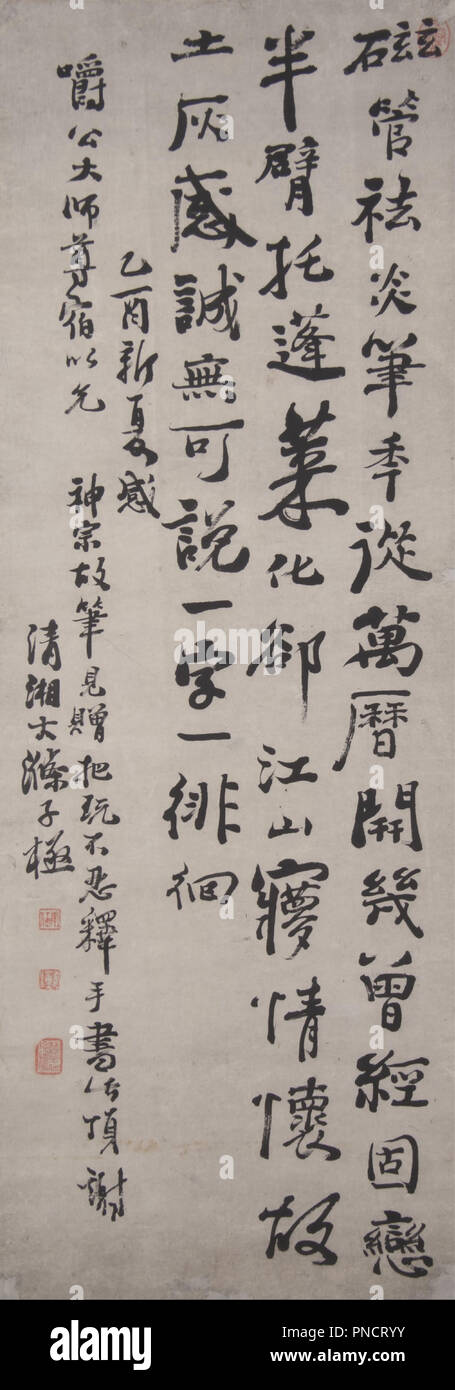 磁管祛炎筆秊從萬曆開幾曾經固戀
半臂托蓬萊化卻江山㝱情懷故
土灰感誠無可說一字一徘徊
乙酉新夏感
嚼公大師尊宿以先
神宗故筆見贈把玩不忍釋手書此頂謝
清湘大滌子極
alamy
Image ID: PNCRYY
www.alamy.com